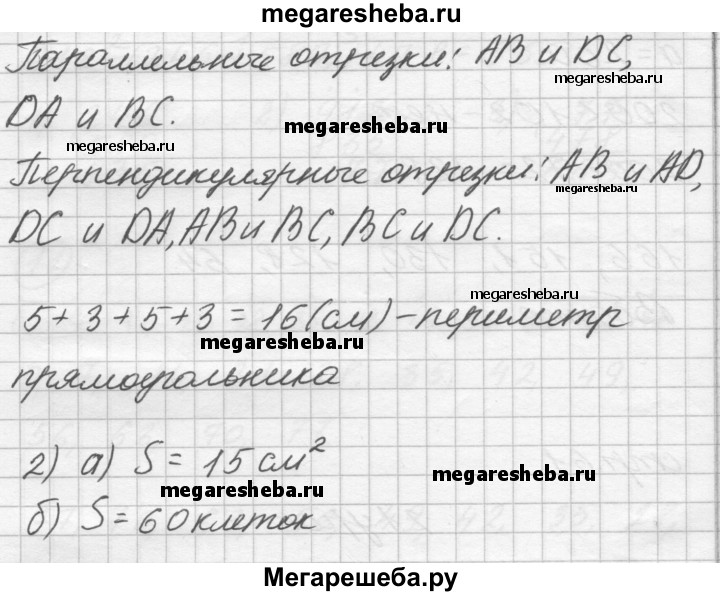 megaresheba.ru
Параллельные отрезки: AB и DC,
megaresheba.ru
DA и BC.
megaresheba.ru
megaresheba.ru
Перпендикулярные отрезки: AB и AD,
megaresheba.ru
DC и DA, AB и BC, BC и DC.
megaresheba.ru
5+3+5+3=16(см)-периметр
megaresheba.ru
прямоугольника
2) а) S = 15 см²
megaresheba.ru
megaresheba.ru
б) S = 60 клеток
Мегарешеба.ру